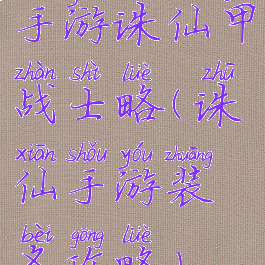 手游诛仙甲
zhàn shì lüè zhū
战士略(诛
xiān shǒu yóu zhuāng
仙手游装
bèi gōng lüè
备攻略)